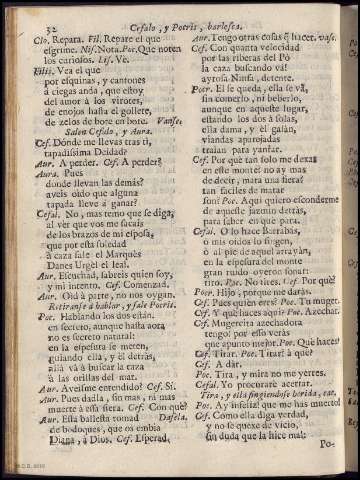 32 Cefalo, y Pocris, burlesca.
Clo. Repara. Fil. Repare el que
esgrime. Nis. Nota. Por. Que noten
los curiosos. Lis. Ve.
Filis. Vea el que
por esquinas, y cantones
à ciegas anda, que estoy
del amor à los virotes,
de enojos hasta el gollete,
de zelos de bote en bote. Vanse.
Salen Cefalo, y Aura.
Cef. Dònde me llevas tras ti,
tapadissima Deidad?
Aur. A perder. Cef. A perder?
Aura. Pues
donde llevan las demàs?
aveis oìdo que alguna
tapada lleve à ganar?
Cefal. No, mas temo que se diga,
al ver que vos me sacais
de los brazos de mi esposa,
que por esta soledad
à caza sale el Marquès
Danes Urgèl el leal.
Aur. Escuchad, sabreis quien soy,
y mi intento. Cef. Comenzad.
Aur. Oid à parte, no nos oygan.
Retiranse à hablar, y sale Pocris.
Poc. Hablando los dos estàn
en secreto, aunque hasta aora
no es secreto natural:
en la espesura se meten,
guiando ella, y èl detràs,
allà và à buscar la caza
à las orillas del mar.
Aur. Aveisme entendido? Cef. Si.
Aur. Pues dadla, sin mas, ni mas
muerte à essa fiera. Cef. Con què?
Aur. Esta ballesta tomad Dasela.
de bodoques, que os embia
Diana, à Dios. Cef. Esperad.
Aur. Tengo otras cosas q̃ hacer. vase.
Cef. Con quanta velocidad
por las riberas del Pò
la caza buscando và!
ayrosa Ninfa, detente.
Pocr. El se queda, ella se và,
sin comerlo, ni beberlo,
aunque en aqueste lugar,
estando los dos à solas,
ella dama, y èl galàn,
viandas aparejadas
traìan para yantar.
Cef. Por què tan solo me dexas
en este monte? no ay mas
de decir, mata una fiera?
tan faciles de matar
son? Poc. Aqui quiero esconderme
de aqueste jazmin detràs,
para saber en què para.
Cefal. O lo hace Barrabàs,
ò mis oìdos lo fingen,
ò al pie de aquel arrayàn,
en la espesura del monte
gran ruido oyeron sonar:
tiro. Poc. No tires. Cef. Por què?
Pocr. Hijo, porque me daràs.
Cef. Pues quien eres? Poc. Tu muger.
Cef. Y què haces aqui? Poc. Azechar.
Cef. Mugercita azechadora
tengo? por essa veràs
que apunto mejor. Poc. Què haces?
Cef. Tirar. Poc. Tirar? à què?
Cef. A dàr.
Poc. Tira, y mira no me yerres.
Cefal. Yo procurarè acertar.
Tira, y ella fingiendose herida, cae.
Poc. Ay infeliz! que me has muerto!
Cef. Como ella diga verdad,
y no se quexe de vicio,
sin duda que la hice mal:
Po-